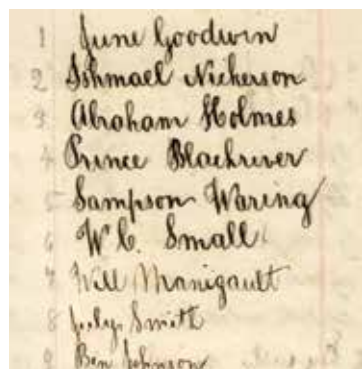 1 June Goodwin
2 Ishmael Nickerson
3 Abraham Holmes
4 Prince Blackriver
5 Sampson Waring
6 W. C. Small
7 Will Manigault
8 Smith
9 Ben Johnson